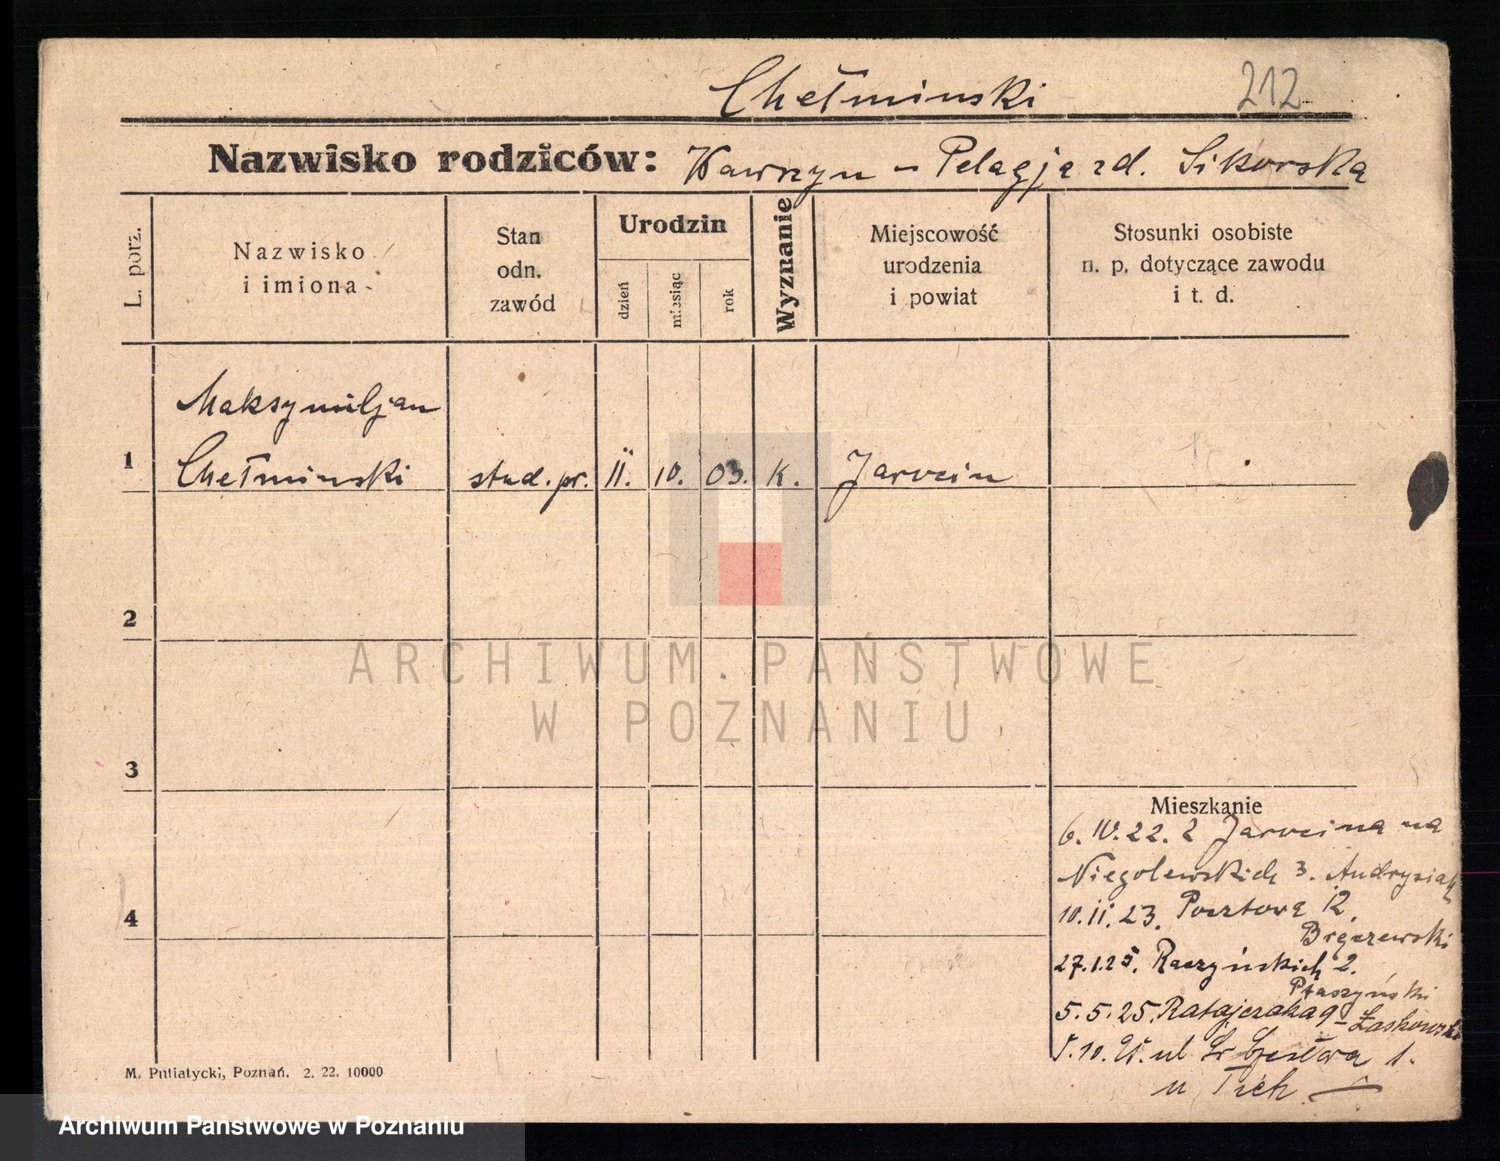 Chełminski 212
Nazwisko rodziców: Wawrzyn – Pelagja zd. Sikorska
L. porz.
Nazwisko
i imiona
Stan
odn.
zawód
Urodzin
dzień
miesiąc
rok
Wyznanie
Miejscowość
urodzenia
i powiat
Stosunki osobiste
n. p. dotyczące zawodu
i t. d.
Maksymiljan
1 Chełminski stud. pr. 11. 10. 03. K. Jarocin
2
ARCHIWUM PAŃSTWOWE
W POZNANIU
3
Mieszkanie
6. IV. 22. z Jarocina na
Niegolewskich 3. Andrysiak
4
10. 11. 23. Pocztowa 12.
27.1.25. Raczyńskich 2.
Ptaszyński
5. 5. 25. Ratajczaka 9 – Łaskowski
5. 10. ul 1.
u
M. Putiatycki, Poznań. 2. 22. 10000
Archiwum Państwowe w Poznaniu